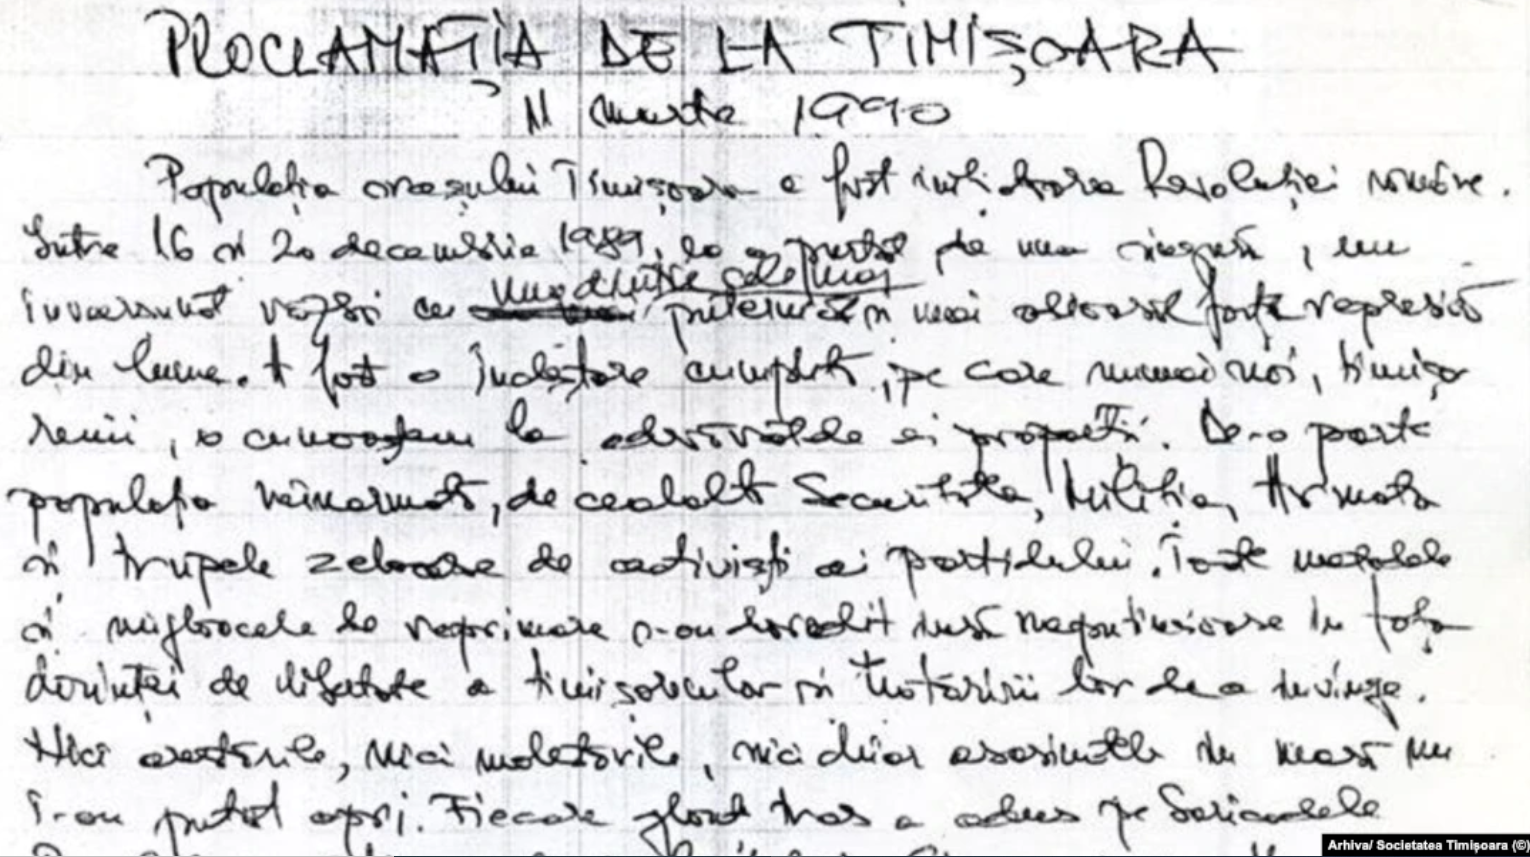 PROCLAMAȚIA DE LA TIMIȘOARA
11 martie 1990
Populația orașului Timișoara a fost inițiatoarea Revoluției române.
Între 16 și 20 decembrie 1989, ea a purtat, de una singură, un
înverșunat război cu una dintre cele mai puternice și mai odioase forțe represive
din lume. A fost o încleștare cumplită, pe care numai noi, timișo
renii, o cunoaștem la adevăratele ei proporții. De-o parte
populația neînarmată, de cealaltă Securitatea, Miliția, Armata
și trupele zeloase de activiști ai partidului. Toate metodele
și mijloacele de reprimare s-au dovedit însă neputincioase în fața
dorinței de libertate a timișorenilor și hotărârii lor de a învinge.
Nici arestările, nici molestările, nici chiar asasinatele în masă nu
i-au putut opri. Fiecare glonț tras a adus pe baricadele
Arhiva/ Societatea Timișoara (©)